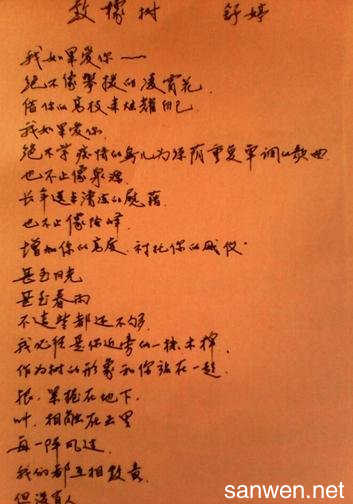 致橡树 舒婷
我如果爱你——
绝不像攀援的凌霄花
借你的高枝来炫耀自己
我如果爱你
绝不学痴情的鸟儿为绿荫重复单调的歌曲
也不止像泉源
长年送去清凉的慰藉
也不止像险峰
增加你的高度,衬托你的威仪
甚至日光
甚至春雨
不这些都还不够
我必须是你近旁的一株木棉,
作为树的形象和你站在一起
根,紧握在地下,
叶,相触在云里
每一阵风过
我们都互相致意
但没有人
sanwen.net